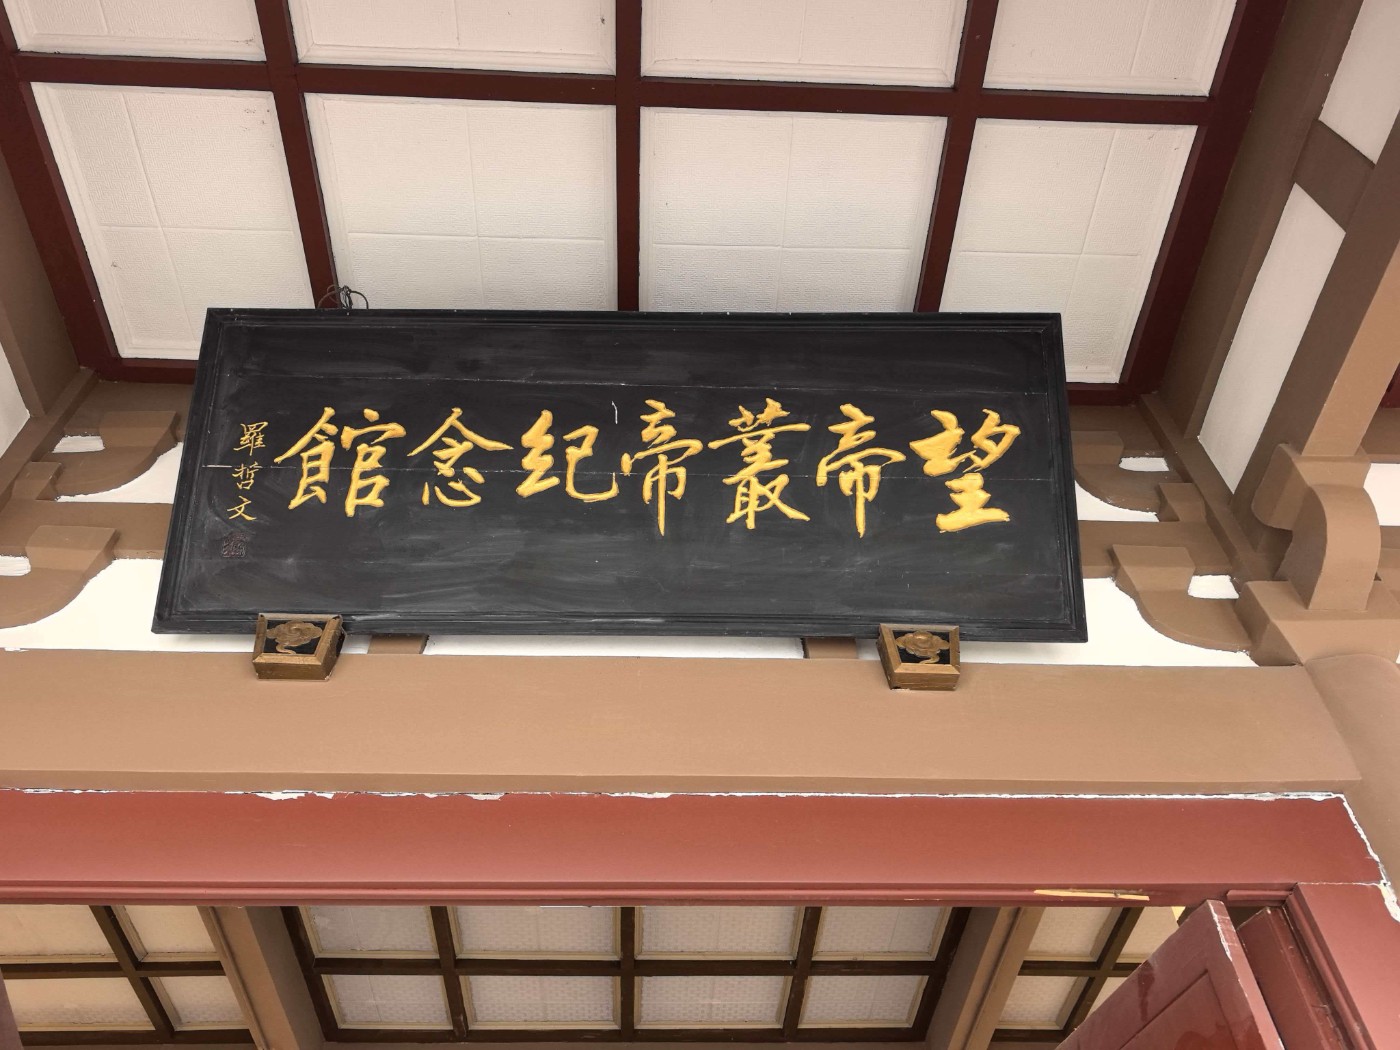 望帝叢帝紀念館
羅哲文